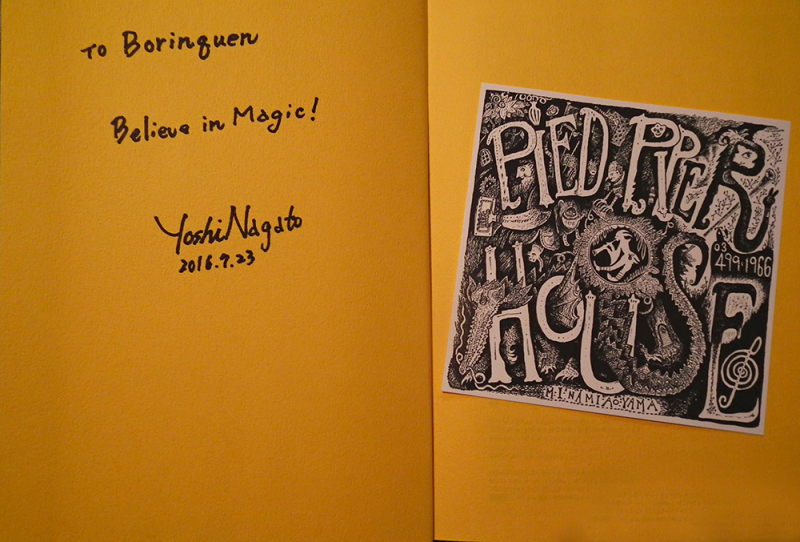 To Borinquen
Believe in Magic!
Yoshi Nagato
2016.7.23
PIED PIPER
HOUSE
03
499·1966
M·I·NAMIAO·YAMA